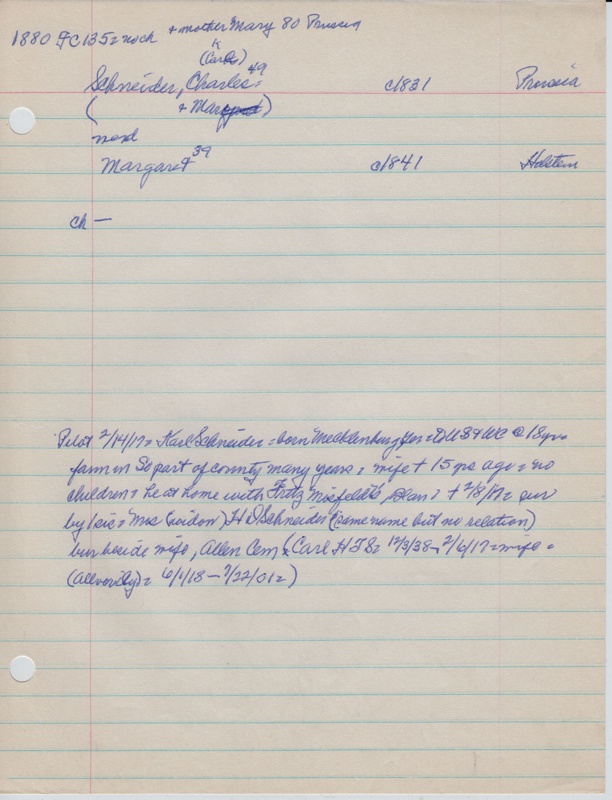 1880 FC 135= no ch + mother Mary 80 Prussia
(Carl)
Schneider, Charles= 49 c1831 Prussia
( + Mar
md
Margaret 39 c1841 Holstein
ch —
Pilot 2/14/17= Karl Schneider= born Mecklenburg Ger= to US & WC @ 18yrs
farm in So part of county many years= wife + 15 yrs ago= no
children= he at home with Fritz + 2/8/17= sur
by 1 sis= Mrs H D Schneider (same name but no relation)
bur beside wife, Allen Cem (Carl H F S= 12/3/38- 2/6/17= wife=
6/1/18 - 7/22/01=)